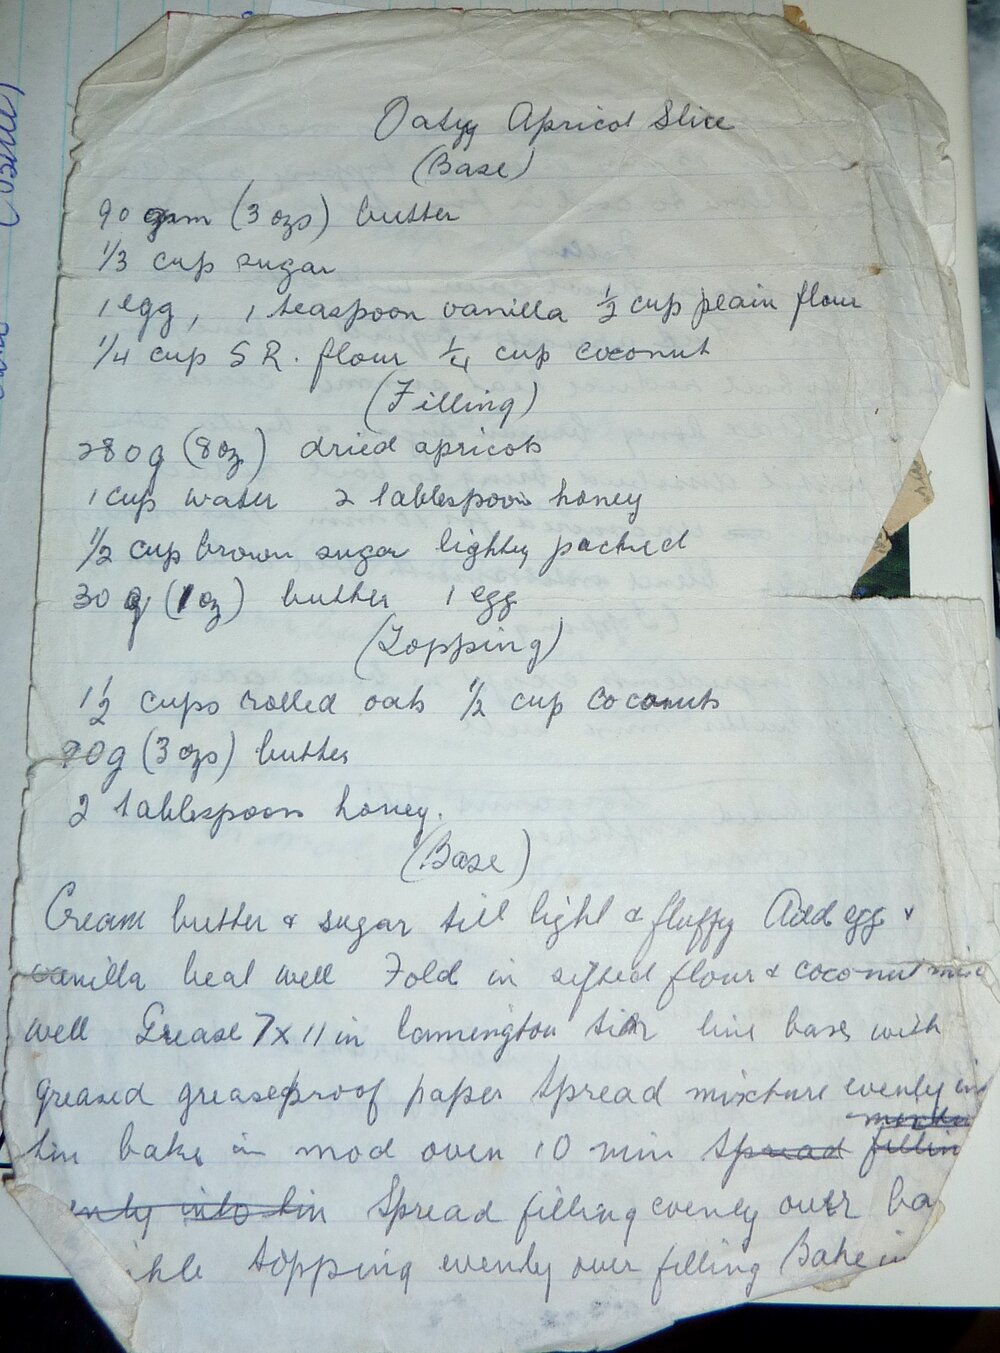 Oatyy Apricot Slice
(Base)
90 gm (3 ozs) butter
1/3 cup sugar
1 egg, 1 teaspoon vanilla 1/2 cup plain flour
1/4 cup S R. flour 1/4 cup coconut
(Filling)
280g (8oz) dried apricots
1 cup water 2 tablespoons honey
1/2 cup brown sugar lightly packed
30 g (1oz) butter 1 egg
(Topping)
1 1/2 cups rolled oats 1/2 cup coconut
90g (3 ozs) butter
2 tablespoons honey.
(Base)
Cream butter & sugar till light & fluffy Add egg &
vanilla beat well Fold in sifted flour & coconut mix
well Grease 7 x 11 in lamington tin line base with
greased greaseproof paper Spread mixture evenly in
tin bake in mod oven 10 min Spread fillin
into tin Spread filling evenly over ba
topping evenly over filling Bake in